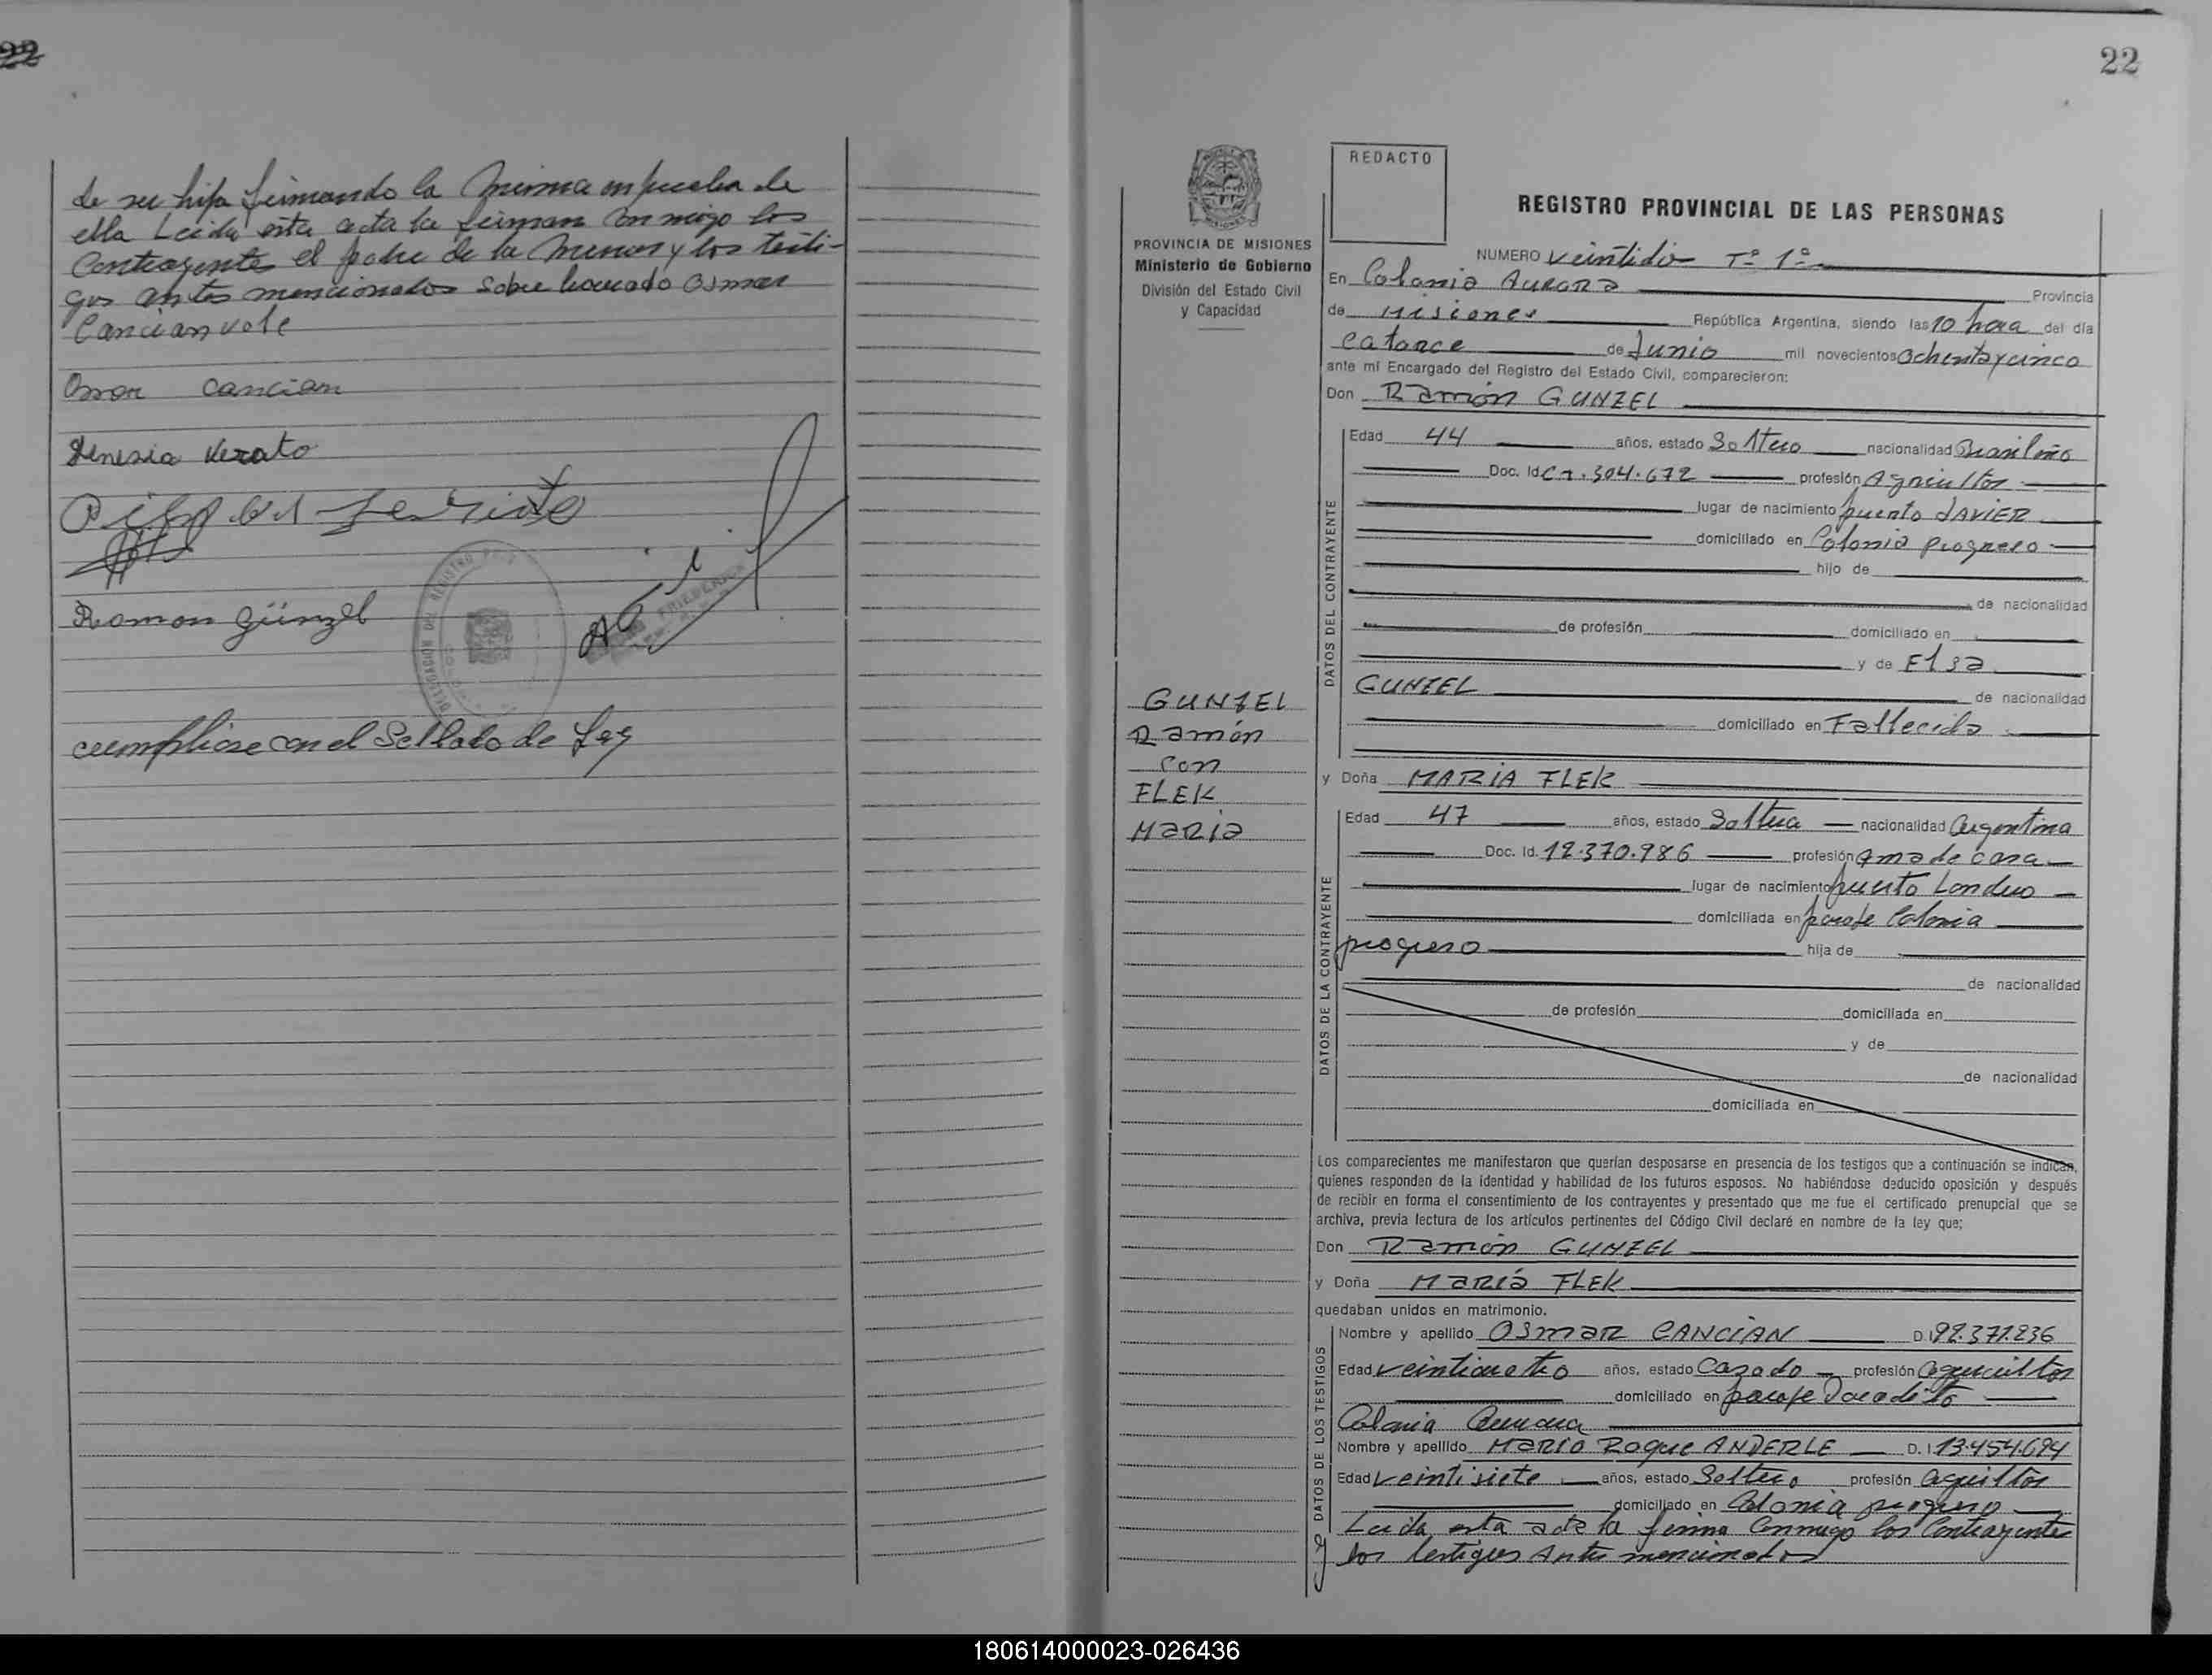 22
de su hija firmando la misma en prueba de
ella Leida esta acta la firman conmigo los
Contrayentes el padre de la menor y los testi-
gos antes mencionados sobre borrado Osmar
Cancian vale
Osmar Cancian
Verato
Ramon Günzel
cumpliose con el Sellado de Ley
22
REDACTO
PROVINCIA DE MISIONES
Ministerio de Gobierno
División del Estado Civil
y Capacidad
REGISTRO PROVINCIAL DE LAS PERSONAS
NUMERO veintidós Tº 1º
En Colonia AURORA Provincia
de Misiones República Argentina, siendo las 10 hora del día
Catorce de Junio mil novecientos ochenta y cinco
ante mí Encargado del Registro del Estado Civil, comparecieron:
Don Ramón GUNZEL
DATOS DEL CONTRAYENTE
Edad 44 años, estado Soltero nacionalidad Brasileño
Doc. Id. 304.672 profesión Agricultor
lugar de nacimiento puerto JAViER
domiciliado en Colonia progreso
hijo de
de nacionalidad
de profesión domiciliado en
y de Elsa
GUNZEL de nacionalidad
domiciliado en Fallecida
GUNZEL
Ramón
con
FLEK
Maria
y Doña MARiA FLEK
DATOS DE LA CONTRAYENTE
Edad 47 años, estado Soltera nacionalidad Argentina
Doc. Id. 12.370.986 profesión ama de casa
lugar de nacimiento puerto Londero
domiciliada en paraje Colonia
progreso hija de
de nacionalidad
de profesión domiciliada en
y de
de nacionalidad
domiciliada en
Los comparecientes me manifestaron que querían desposarse en presencia de los testigos que a continuación se indican,
quienes responden de la identidad y habilidad de los futuros esposos. No habiéndose deducido oposición y después
de recibir en forma el consentimiento de los contrayentes y presentado que me fue el certificado prenupcial que se
archiva, previa lectura de los artículos pertinentes del Código Civil declaré en nombre de la ley que;
Don Ramón GUNZEL
y Doña María FLEK
quedaban unidos en matrimonio.
DATOS DE LOS TESTIGOS
Nombre y apellido OSmaR CANCiAN D.I 92.371.236
Edad veinticuatro años, estado Cazado profesión agricultor
domiciliado en paraje Doradito
Colonia Aurora
Nombre y apellido Mario Roque ANDERLE D.I 13.454.694
Edad veintisiete años, estado Soltero profesión agricultor
domiciliado en Colonia progreso
Leida esta acta la firma Conmigo los Contrayentes
y los testigos antes mencionados
180614000023-026436